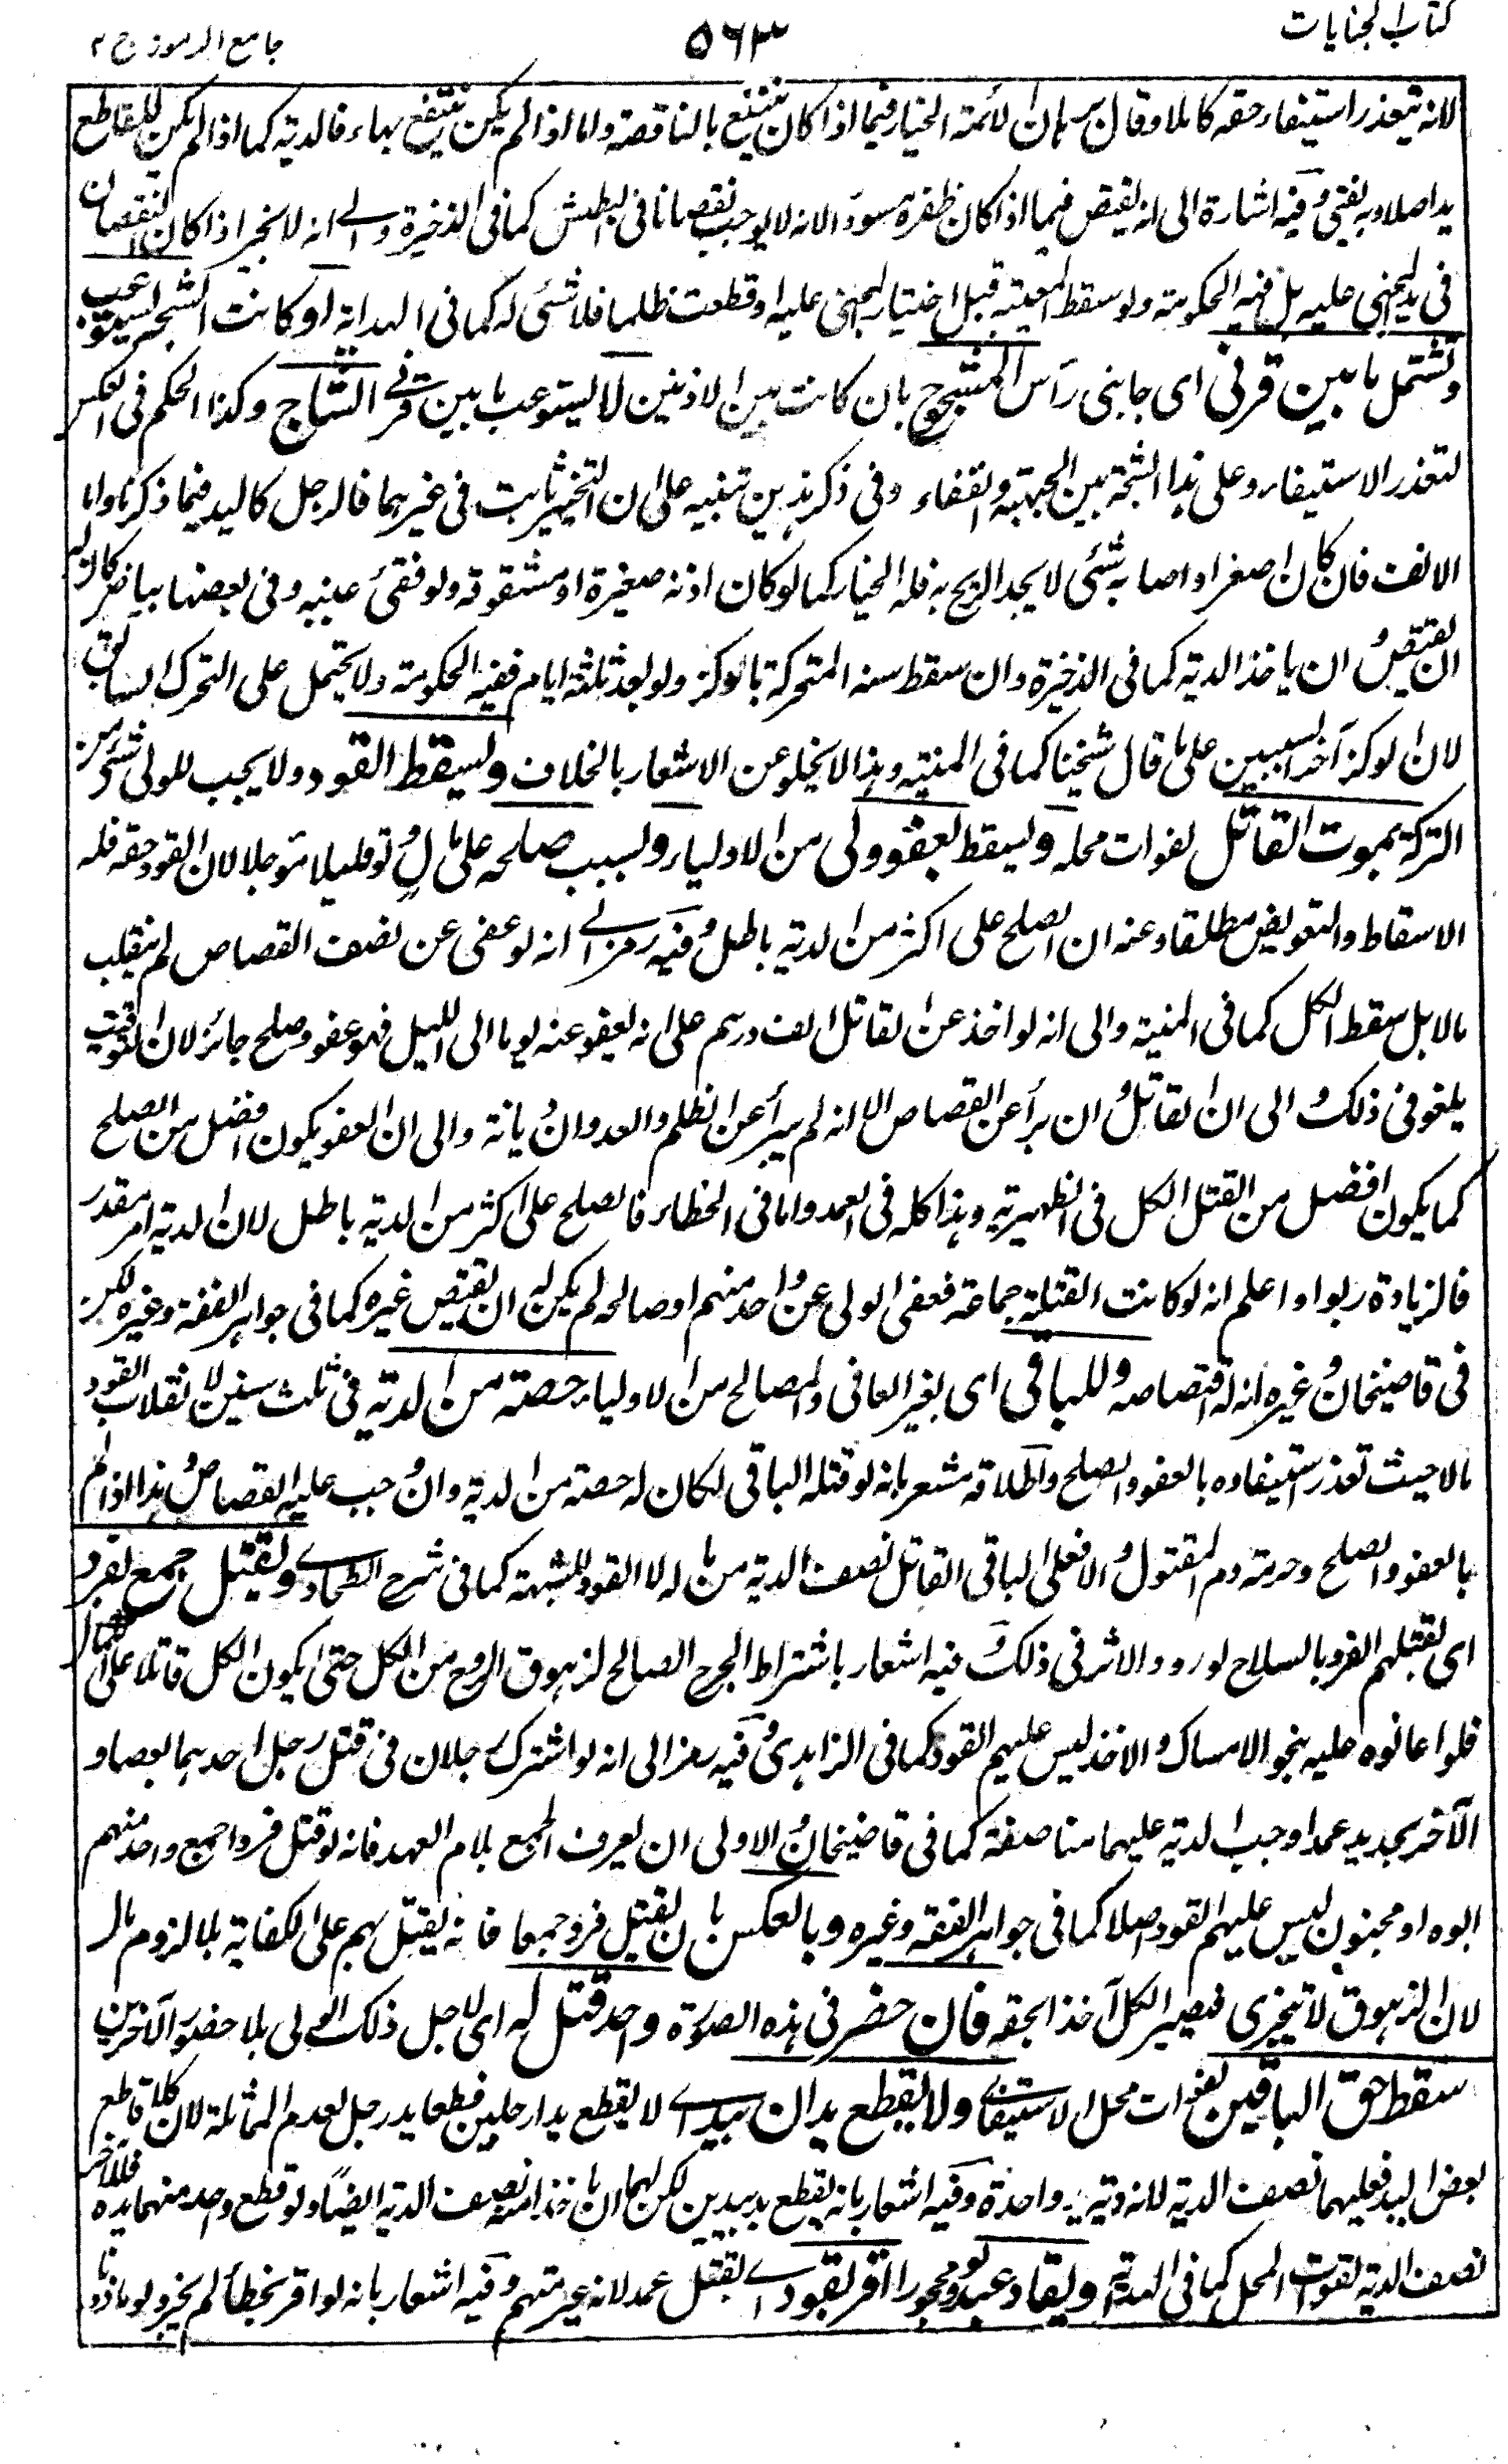 كتاب الجنايات
٥٦٣
جامع الرموز ج ٢
لانه يتعذر استيفاء حقه كاملا وقال برهان الائمة الخيار فيما اذا كان ينتفع بالناقصة واما اذا لم يكن ينتفع بها فالدية كما اذا لم يكن للقاطع
يد اصلا وبه يفتى وفيه اشارة الى انه يقتص فيما اذا كان ظفره مسودا لانه لا يوجب نقصانا فى البطش كما فى الذخيرة والى انه لا يخير اذا كان النقصان
فى يد المجنى عليه بل فيه الحكومة ولو سقط المعيبة قبل اختيار المجنى عليه او قطعت ظلما فلا شئ له كما فى الهداية او كانت الشجة تستوعب
وتشتمل ما بين قرنى اى جانبى رأس المشجوج بان كانت بين الاذنين لا يستوعب ما بين قرنى الشاج وكذا الحكم فى العكس
لتعذر الاستيفاء وعلى هذا الشجة بين الجبهة والقفاء وفى ذكر هذين تنبيه على ان التخيير ثابت فى غيرهما فالرجل كاليد فيما ذكرنا واما
الانف فان كان اصغر او اصابه شئ لا يجد الريح به فله الخيار كما لو كان اذنه صغيرة او مشقوقة ولو فقئ عينيه وفى بعضها بياض كان له
ان يقتص وان ياخذ الدية كما فى الذخيرة وان سقط سنه المتحركة بالوكز ولو بعد ثلثة ايام ففيه الحكومة ولا يحتمل على التحرك السابق
لان الوكز آخد السببين على ما قال شيخنا كما فى المنية وهذا لا يخلو عن الاشعار بالخلاف ويسقط القود ولا يجب للولى شئ من
التركة بموت القاتل لفوات محله ويسقط بعفو ولى من الاولياء وبسبب صلحه على مال ولو قليلا مؤجلا لان القود حقه فله
الاسقاط والتعويض مطلقا وعنه ان الصلح على اكثر من الدية باطل وفيه رمز الى انه لو عفى عن نصف القصاص لم ينقلب
مالا بل سقط الكل كما فى المنية والى انه لو اخذ عن القاتل الف درهم على انه يعفو عنه يوما الى الليل فهو عفو وصلح جائز لان التوقيت
يلغو فى ذلك والى ان القاتل وان برأ عن القصاص الا انه لم يبرأ عن الظلم والعدوان ديانة والى ان العفو يكون افضل من الصلح
كما يكون افضل من القتل الكل فى الظهيرية وهذا كله فى العمد واما فى الخطاء فالصلح على اكثر من الدية باطل لان الدية امر مقدر
فالزيادة ربوا واعلم انه لو كانت القتلة جماعة فعفى الولى عن واحد منهم او صالحه لم يكن له ان يقتص غيره كما فى جواهر الفقه وغيره لكن
فى قاضيخان وغيره انه له اقتصاصه وللباقى اى لغير العافى والمصالح من الاولياء حصته من الدية فى ثلث سنين لانقلاب القود
مالا حيث تعذر استيفاءه بالعفو والصلح واطلاقه مشعر بانه لو قتله الباقى لكان له حصته من الدية وان وجب عليه القصاص وهذا اذا علم
بالعفو والصلح وحرمة دم المقتول والا فعلى الباقى القاتل نصف الدية من ماله لا القود للشبهة كما فى شرح الطحاوى ويقتل جمع بفرد
اى بقتلهم الفرد بالسلاح لورود الاثر فى ذلك وفيه اشعار باشتراط الجرح الصالح لزهوق الروح من الكل حتى يكون الكل قاتلا على الكمال
فلو اعانوه عليه بنحو الامساك والاخذ ليس عليهم القود كما فى الزاهدى وفيه رمز الى انه لو اشترك رجلان فى قتل رجل احدهما بعصا و
الآخر بحديد عمدا وجب الدية عليهما مناصفة كما فى قاضيخان والاولى ان يعرف الجمع بلام العهد فانه لو قتل فردا جمع واحد منهم
ابوه او مجنون ليس عليهم القود اصلا كما فى جواهر الفقه وغيره وبالعكس بان يقتل فرد جمعا فانه يقتل بهم على الكفاية بلا لزوم مال
لان الزهوق لا يتجزى فيصير الكل آخذا بحقه فان حضر فى هذه الصورة واحد قتل له اى لاجل ذلك الولى بلا حضور الآخرين
سقط حق الباقين لفوات محل الاستيفاء ولا يقطع يدان بيد اى لا يقطع يدا رجلين قطعا يد رجل لعدم المماثلة لان كلا قاطع
بعض اليد فعليهما نصف الدية لانه دية يد واحدة وفيه اشعار بانه يقطع يد بيدين لكن لهما ان ياخذا منه نصف الدية ايضا ولو قطع واحد منهما يده فللآخر
نصف الدية لفوات المحل كما فى الهداية ويقاد عبد ولو محجورا اقر بقود اى بقتل عمد لانه غير متهم وفيه اشعار بانه لو اقر بخطأ لم يجز ولو ماذونا